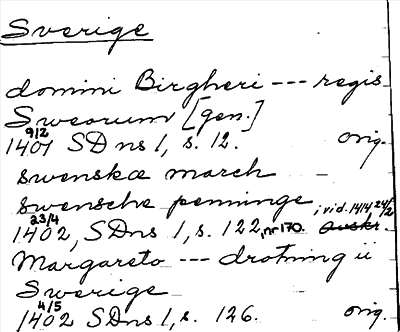 Sverige
domini Birgheri --- regis
Sweorum [gen.]
9/2
1401 SD ns 1, s. 12. orig.
swenskæ march -
swensche peninge, vid. 1414 24/2
23/4
1402, SDns 1, s. 122, nr 170. avskr.
Margareta --- drotning ii
Swerige
4/5
1402 SDns 1, s. 126. orig.